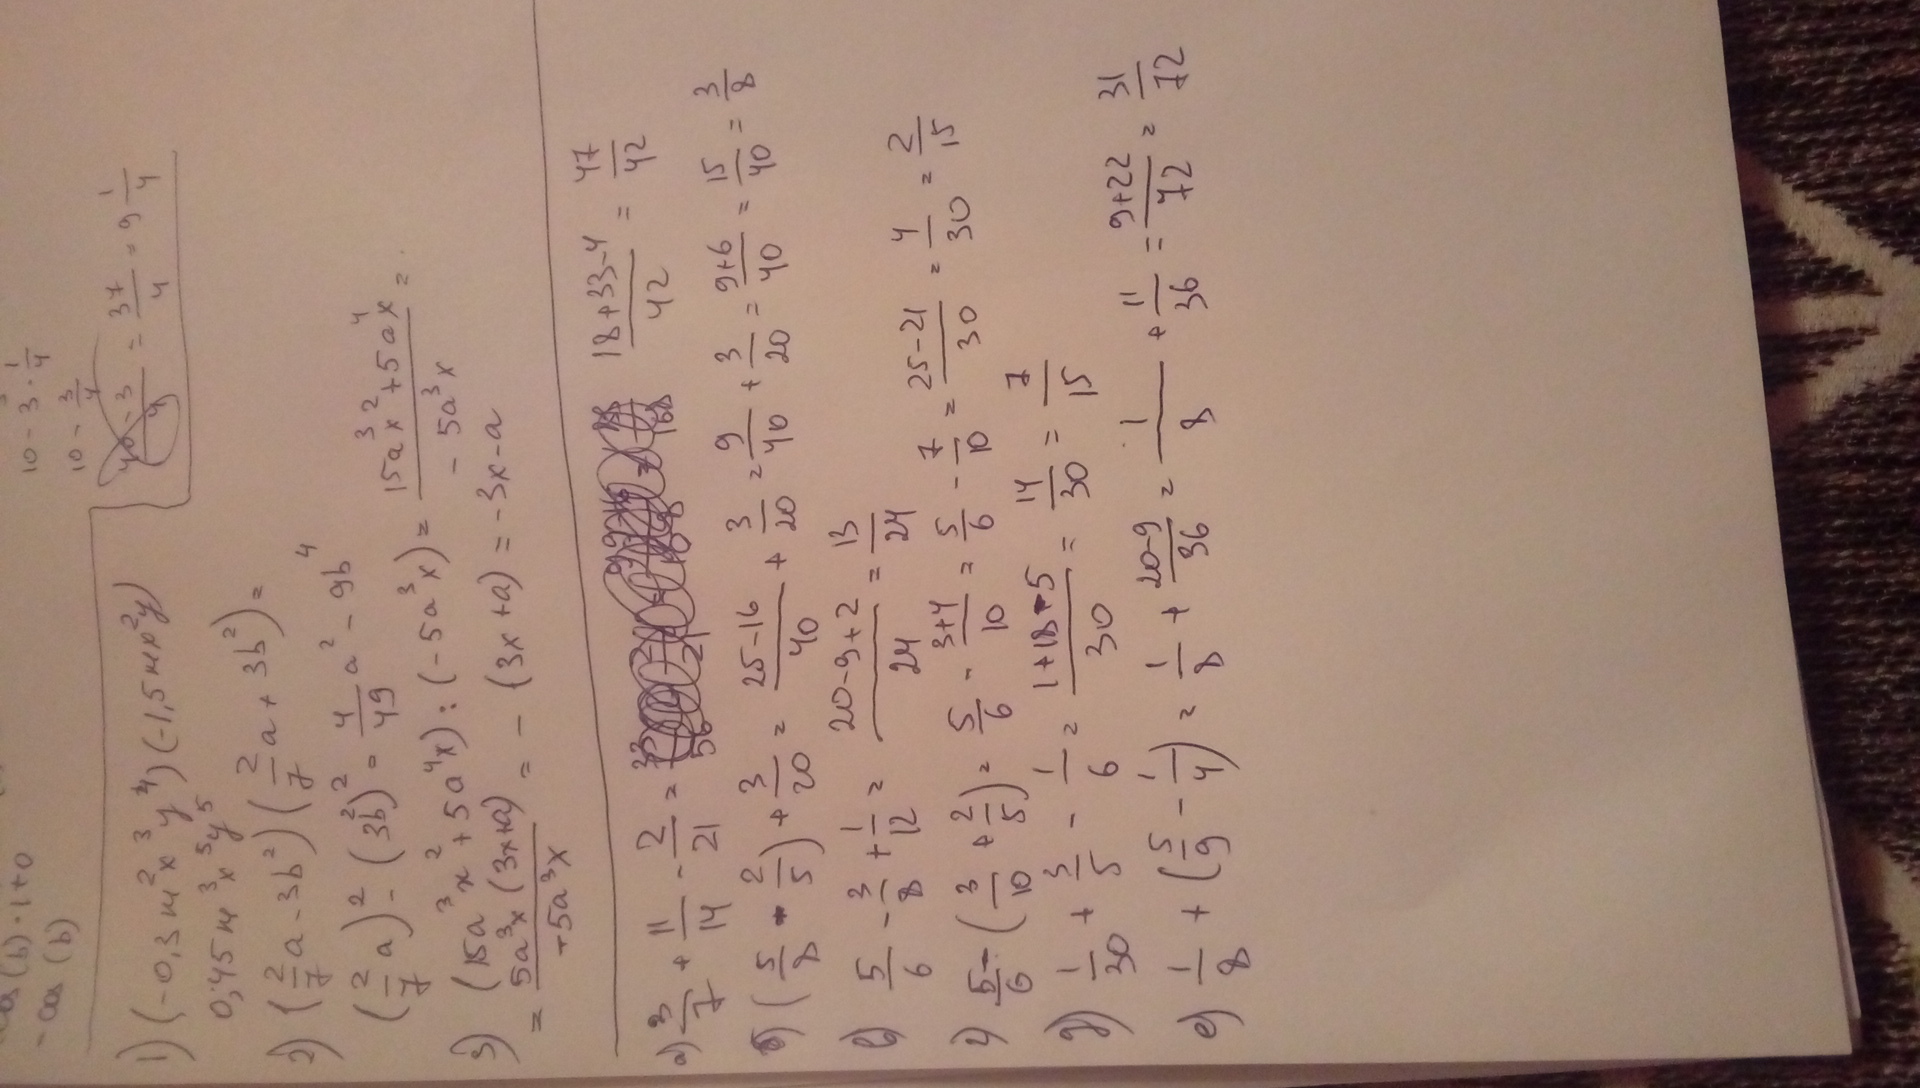 cos(b)·1+0
- cos (b)
10 - 3 · 1/4
10 - 3/4
= 37/4 = 9 1/4
1) (-0,3 m²x³y⁴)(-1,5mx²y)
0,45m³x⁵y⁵
2) (2/7 a - 3b²)(2/7 a + 3b²) =
(2/7 a)² - (3b²)² = 4/49 a² - 9b⁴
3) (15a³x² + 5a⁴x) : (-5a³x) = (15a³x² + 5a⁴x)/(-5a³x) =
= 5a³x(3x+a)/(-5a³x) = -(3x+a) = -3x-a
а) 3/7 + 11/14 - 2/21 = (18+33-4)/42 = 47/42
б) (5/8 - 2/5) + 3/20 = (25-16)/40 + 3/20 = 9/40 + 3/20 = (9+6)/40 = 15/40 = 3/8
в) 5/6 - 3/8 + 1/12 = (20-9+2)/24 = 13/24
г) 5/6 - (3/10 + 2/5) = 5/6 - (3+4)/10 = 5/6 - 7/10 = (25-21)/30 = 4/30 = 2/15
д) 1/30 + 3/5 - 1/6 = (1+18-5)/30 = 14/30 = 7/15
е) 1/8 + (5/9 - 1/4) = 1/8 + (20-9)/36 = 1/8 + 11/36 = (9+22)/72 = 31/72